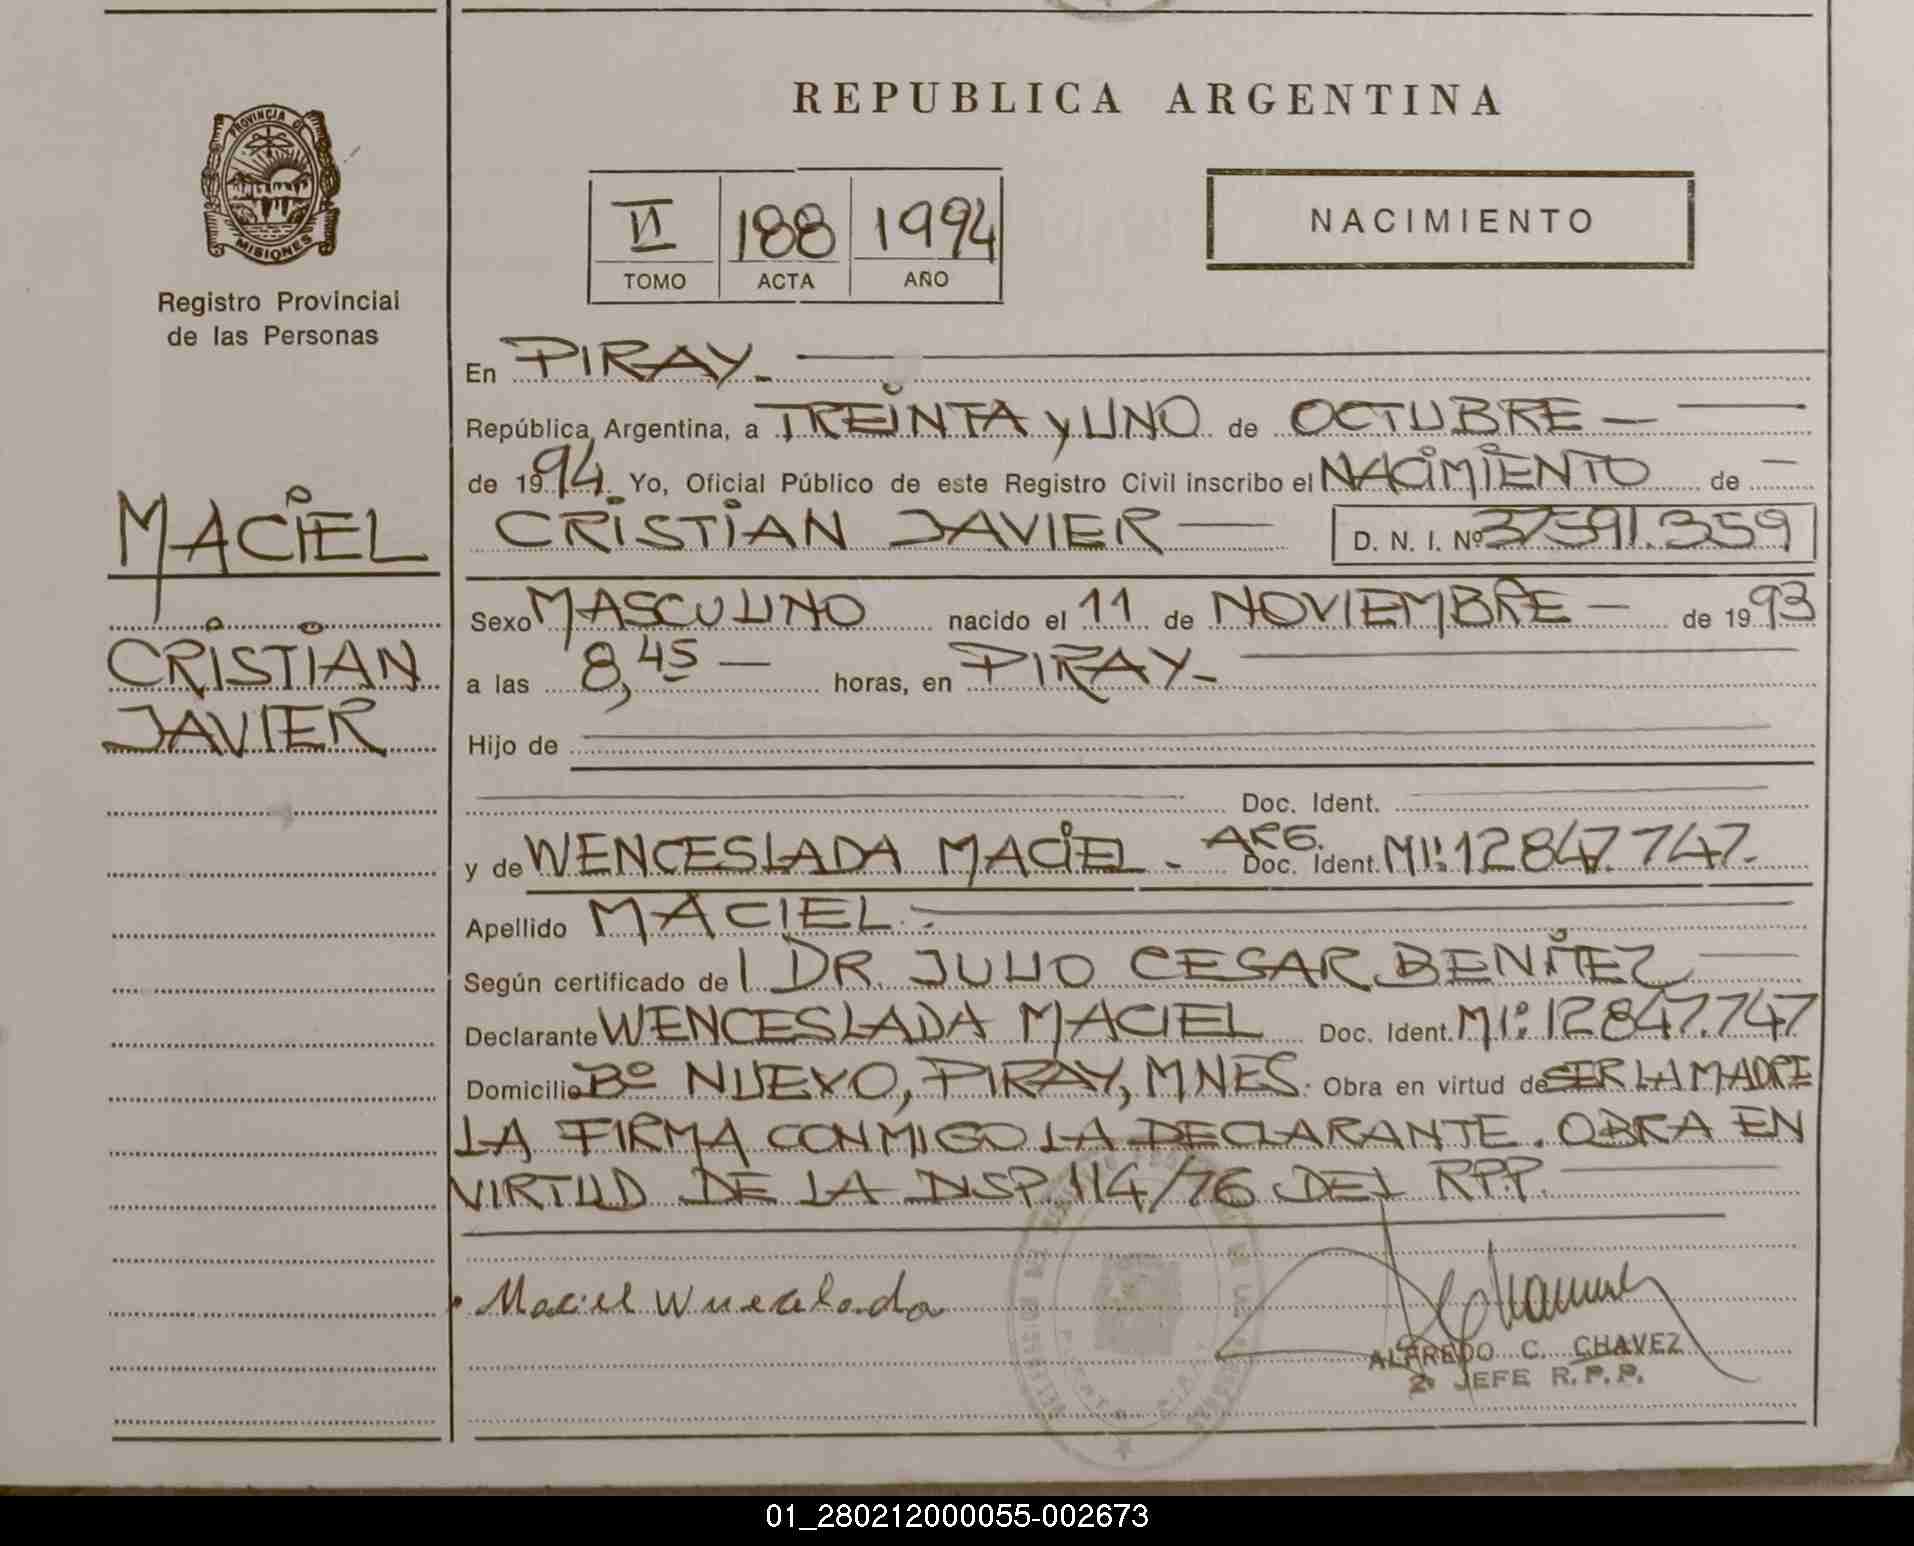 REPUBLICA ARGENTINA
PROVINCIA DE
MISIONES
Registro Provincial
de las Personas
VI 188 1994
TOMO ACTA AÑO
NACIMIENTO
MACIEL
CRISTIAN
JAVIER
En PIRAY.
República Argentina, a TREINTA y UNO de OCTUBRE
de 1994. Yo, Oficial Público de este Registro Civil inscribo el NACIMIENTO de
CRISTIAN JAVIER D. N. I. Nº 37591.359
Sexo MASCULINO nacido el 11 de NOVIEMBRE de 1993
a las 8,45 horas, en PIRAY.
Hijo de
Doc. Ident.
y de WENCESLADA MACIEL - ARG. Doc. Ident. MI: 12847.747.
Apellido MACIEL.
Según certificado de DR. JULIO CESAR BENITEZ
Declarante WENCESLADA MACIEL Doc. Ident. MI: 12847.747
Domicilio Bº NUEVO, PIRAY, MNES. Obra en virtud de SER LA MADRE
LA FIRMA CONMIGO LA DECLARANTE. OBRA EN
VIRTUD DE LA DISP. 114/76 DEL RPP.
Maciel
ALFREDO C. CHAVEZ
2º JEFE R.P.P.
01_280212000055-002673